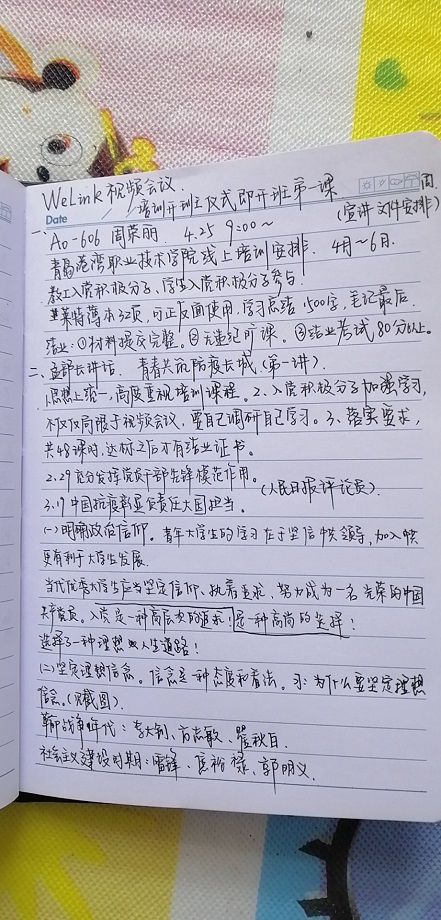 WeLink 视频会议.
培训开班主仪式即开班第一课 周
Date
(宣讲文件安排)
一、A0-606 周荣丽. 4.25 9:00~
青岛港湾职业技术学院线上培训安排. 4月~6月.
教工入党积极分子、学生入党积极分子参与.
莱特薄本32页,可正反面使用,学习总结1500字,笔记最后.
结业:①材料提交完整。②无违纪旷课。③结业考试80分以上。
二、孟部长讲话. 青春共筑防疫长城.(第一讲).
1.思想上统一,高度重视培训课程。2、入党积极分子加强学习,
不仅仅局限于视频会议,要自己调研自己学习。3、落实要求,
共48课时,达标之后才有结业证书。
2.29 充分发挥党员干部先锋模范作用。
3.19 中国抗疫彰显负责任大国担当。 (人民日报评论员).
(一)明确政治信仰。青年大学生的学习在于坚信中共领导,加入中共
更有利于大学生发展.
当代优秀大学生应当坚定信仰、执着追求、努力成为一名光荣的中国
共产党员。入党是一种高层次的追求!是一种高尚的选择!
选择了一种理想的人生道路!
(二)坚定理想信念。信念是一种态度和看法。习:为什么要坚定理想
信念.(见截图).
革命战争年代:李大钊、方志敏、瞿秋白.
社会主义建设时期:雷锋、焦裕禄、郭明义.